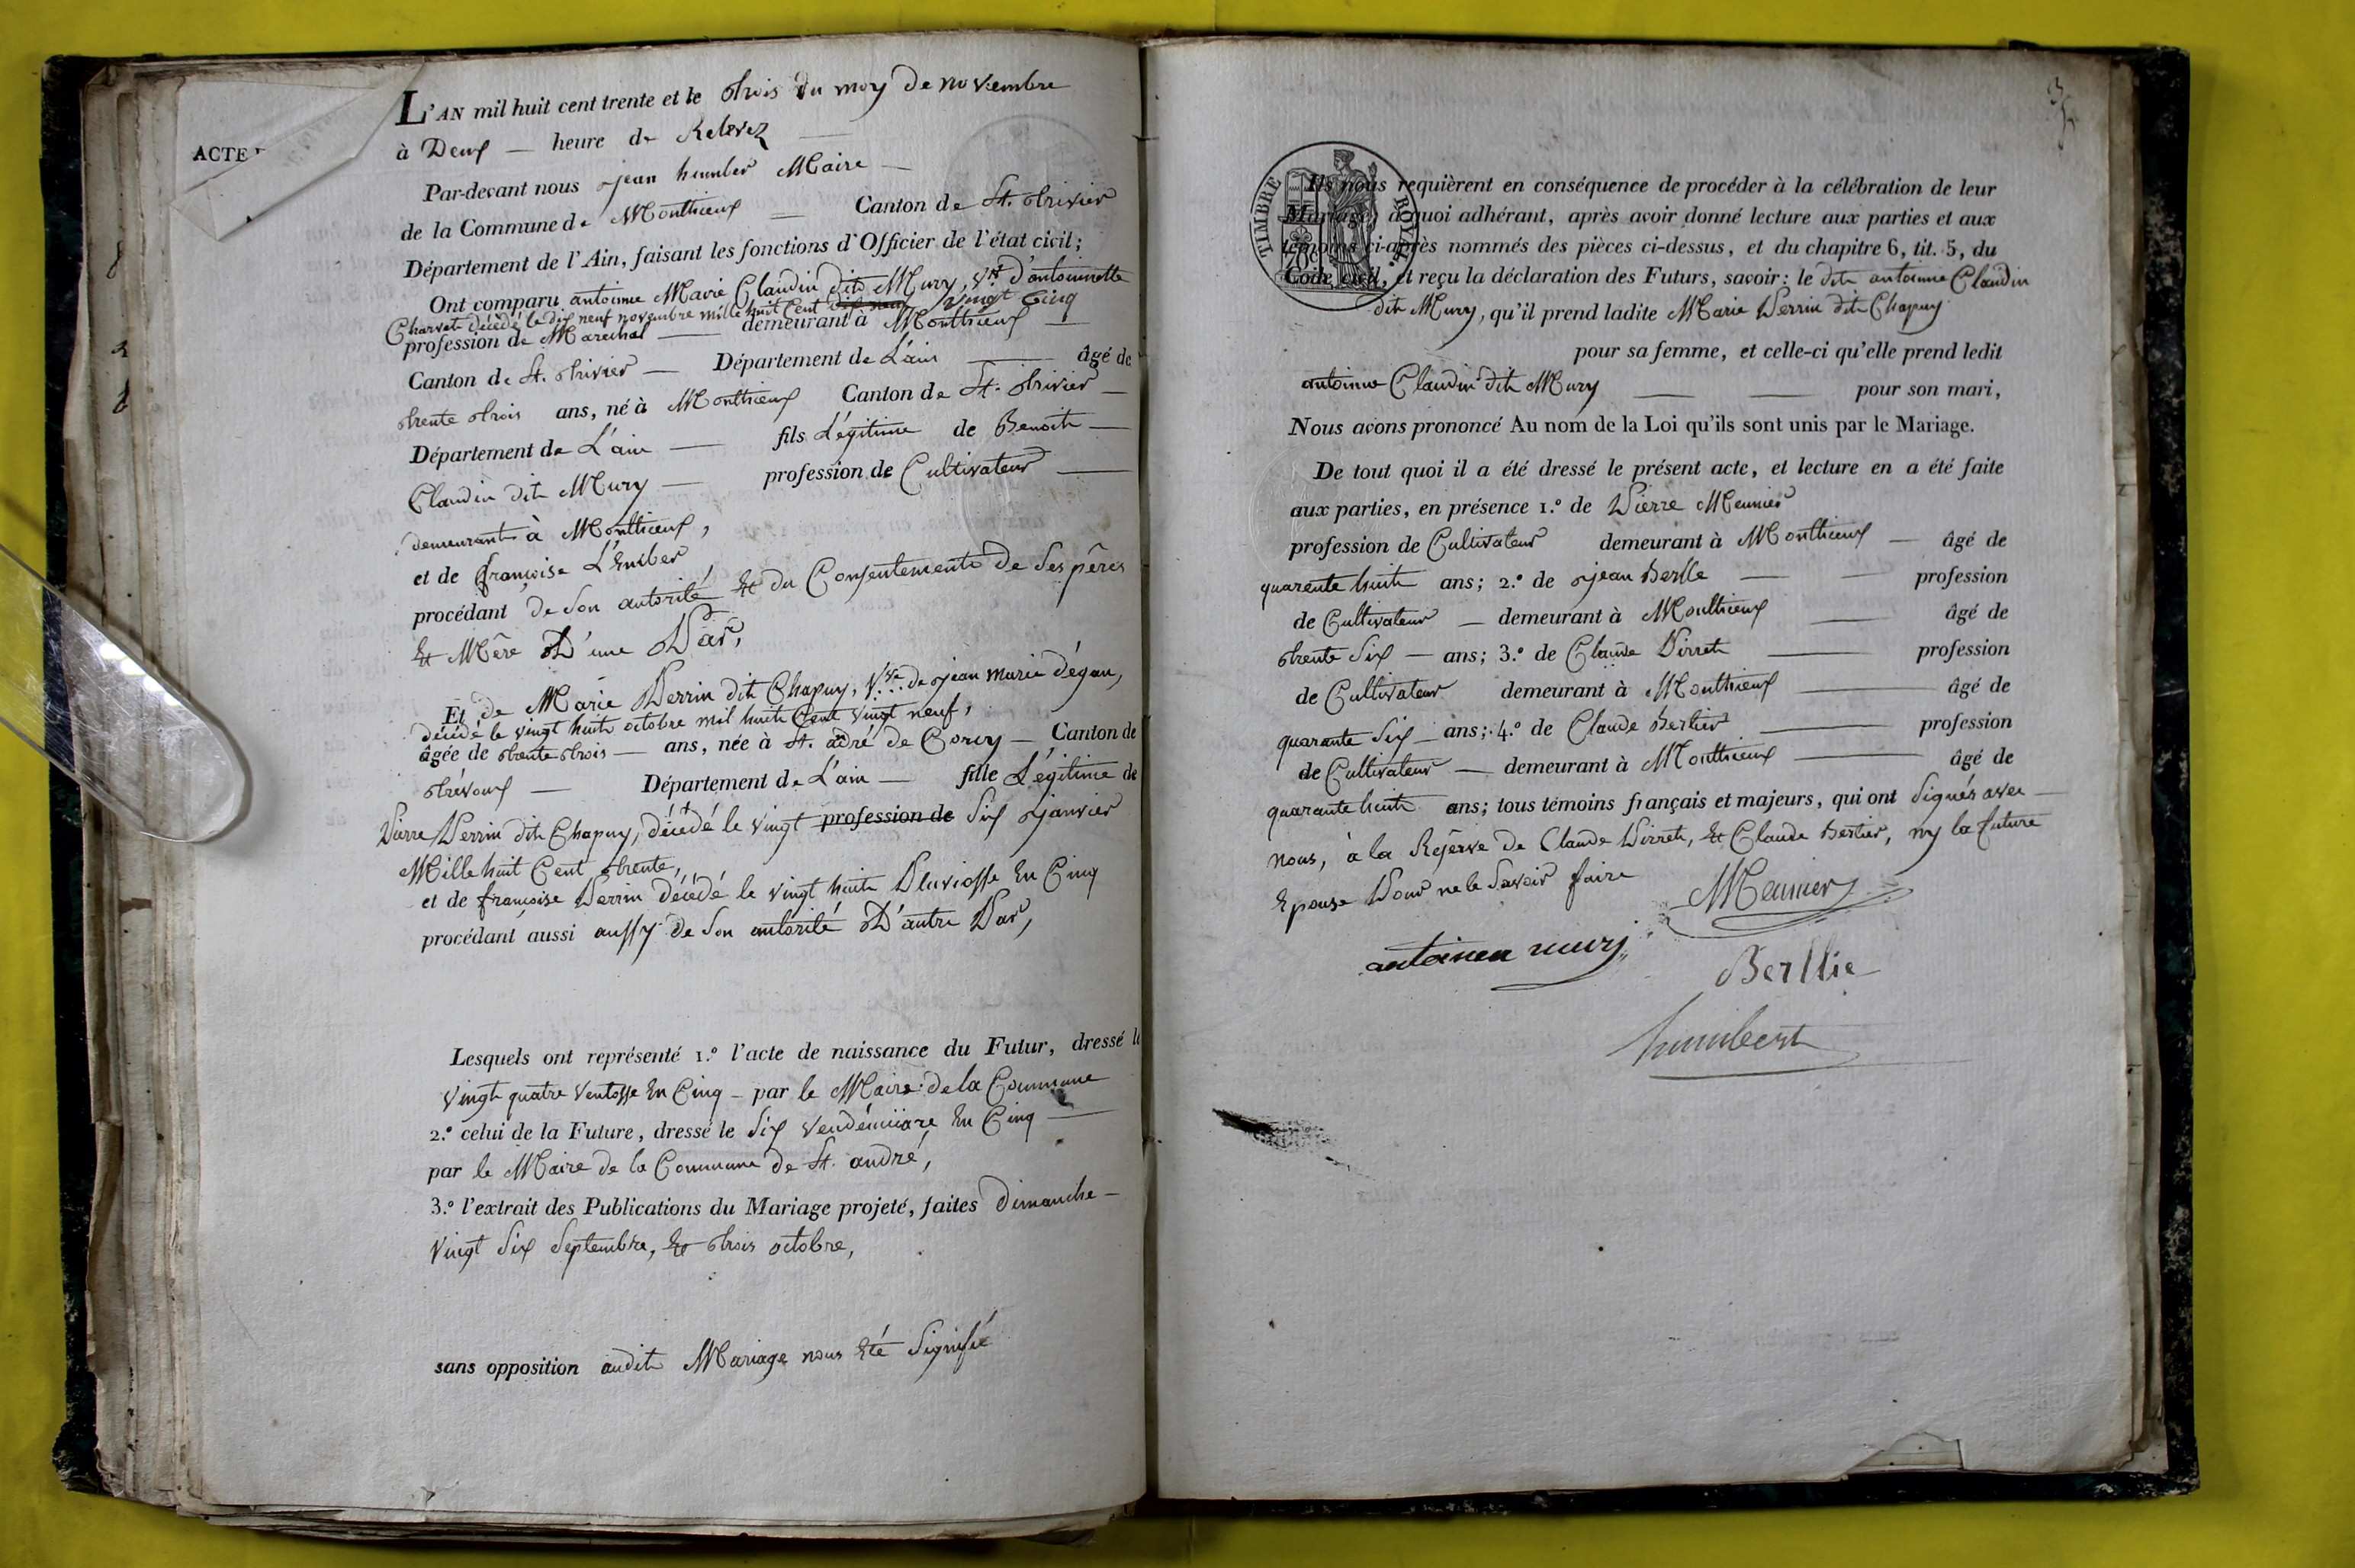 ACTE
L'AN mil huit cent trente et le trois du moy de novembre
à Deux — heure de Relevez —
Par-devant nous jean humber Maire —
de la Commune de Monthieux — Canton de St. trivier
Département de l'Ain, faisant les fonctions d'Officier de l'état civil;
Ont comparu antoinne Marie Claudin dit Mury, Vf. d'antoinnette
Charvet décédé le dix neuf novembre mille huit Cent vingt Cinq
profession de Marechal — demeurant à Monthieux —
Canton de St. trivier — Département de L'ain — âgé de
trente trois ans, né à Monthieux Canton de St. trivier —
Département de L'ain — fils Légitime de Benoit —
Claudin dit Mury — profession de Cultivateur —
demeurant à Monthieux,
et de françoise L'Enber
procédant de Son autorité, Et du Consentement de Ses pères
Et Mère D'une Par,
Et de Marie Perrin dit Chapuy, Vve. de jean marie dégau,
décédé le vingt huit octobre mil huit Cent vingt neuf,
âgée de trente trois — ans, née à St. adré de Corcy — Canton de
trévoux — Département de L'ain — fille Légitime de
Pierre Perrin dit Chapuy, décédé le vingt profession de Six janvier
Mille huit Cent trente,
et de françoise Perrin décédé le vingt huit Pluviosse En Cinq
procédant aussi aussy de Son autorité D'autre Par,
Lesquels ont représenté 1.º l'acte de naissance du Futur, dressé le
vingt quatre Ventosse En Cinq — par le Maire de la Commune
2.º celui de la Future, dressé le Six Vendémiiare En Cinq —
par le Maire de la Commune de St. andré,
3.º l'extrait des Publications du Mariage projeté, faites Dimanche —
Vingt Six Septembre, Et trois octobre,
sans opposition audit Mariage nous Eté Signifié
TIMBRE ROYAL
70c
Ils nous requièrent en conséquence de procéder à la célébration de leur
Mariage; à quoi adhérant, après avoir donné lecture aux parties et aux
témoins ci-après nommés des pièces ci-dessus, et du chapitre 6, tit. 5, du
Code civil, et reçu la déclaration des Futurs, savoir: le dit antoinne Claudin
dit Mury, qu'il prend ladite Marie Perrin dit Chapuy
pour sa femme, et celle-ci qu'elle prend ledit
antoinne Claudin dit Mury — — pour son mari,
Nous avons prononcé Au nom de la Loi qu'ils sont unis par le Mariage.
De tout quoi il a été dressé le présent acte, et lecture en a été faite
aux parties, en présence 1.º de Pierre Meunier
profession de Cultivateur demeurant à Monthieux — âgé de
quarente huit ans; 2.º de jean Berlle — — profession
de Cultivateur — demeurant à Monthieux — âgé de
trente Six — ans; 3.º de Claude Pirret — profession
de Cultivateur demeurant à Monthieux — âgé de
quarante Six — ans; 4.º de Claude Bertier — profession
de Cultivateur — demeurant à Monthieux — âgé de
quarante huit ans; tous témoins français et majeurs, qui ont Signés avec —
nous, à la Réserve de Claude Pirret, Et Claude Bertier, ny la future
Epouse Pour ne le Savoir faire
Meunier
antoinen mury
Berllie
humbert